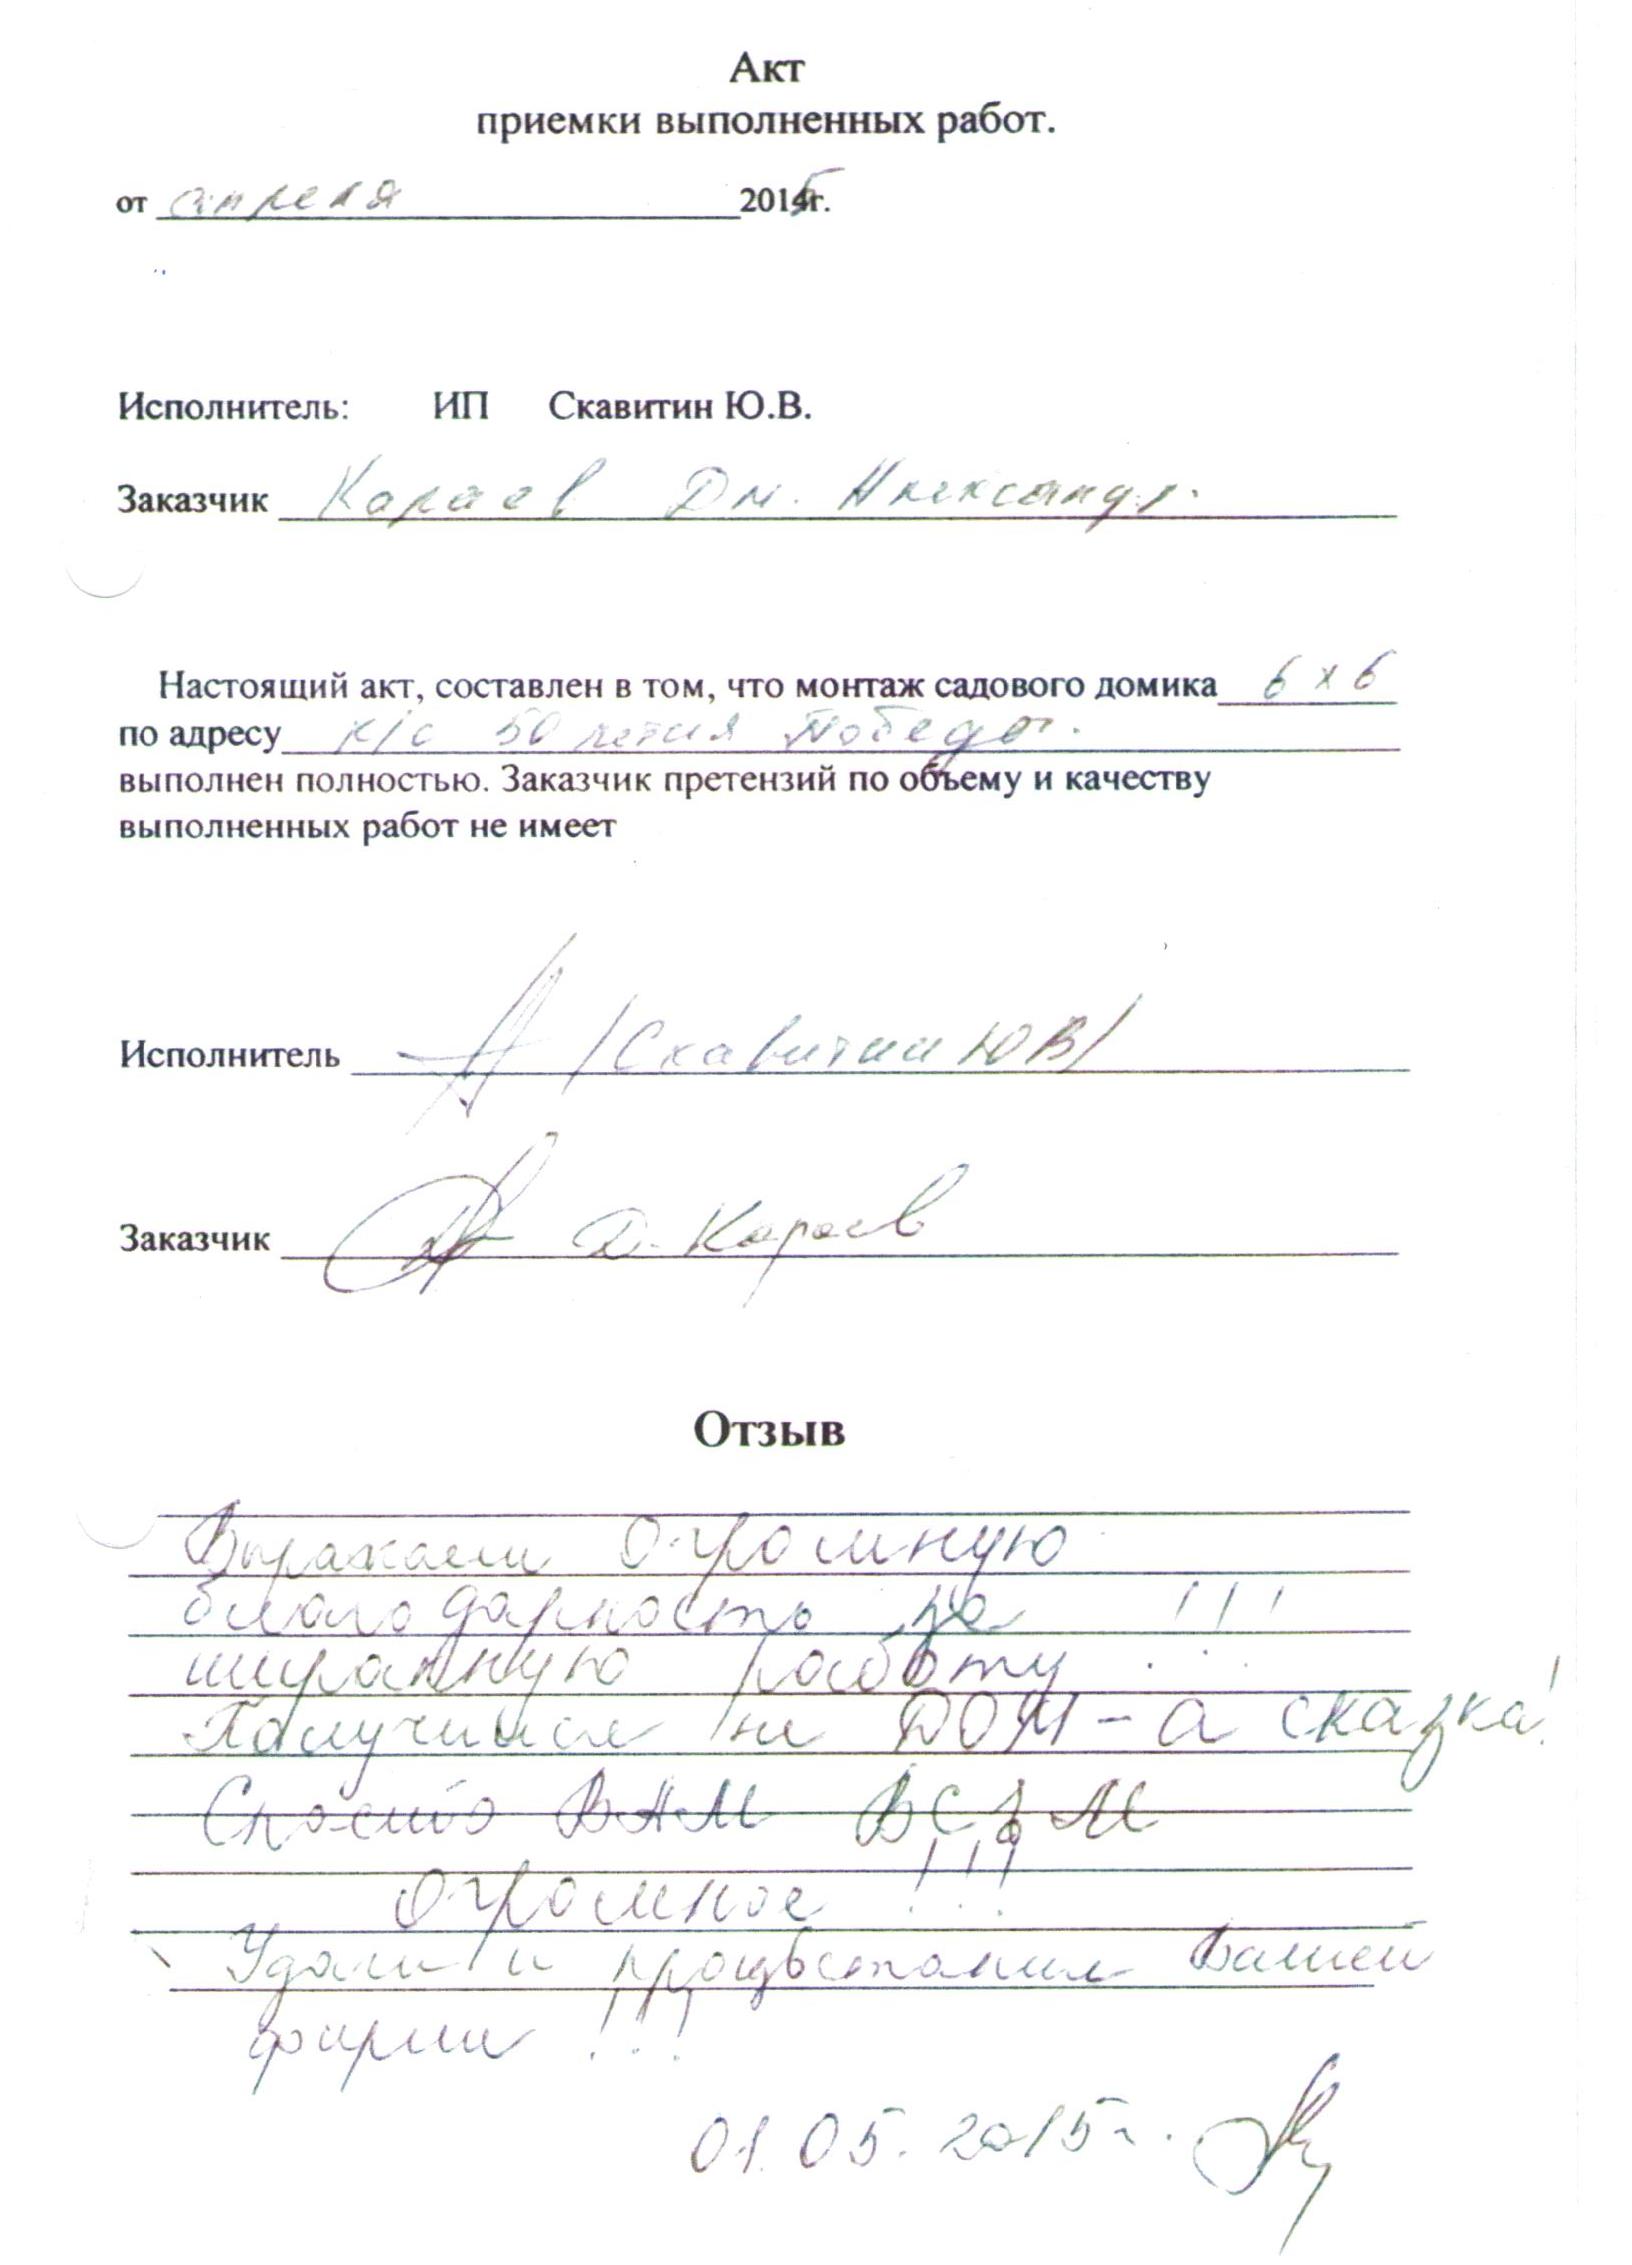 Акт
приемки выполненных работ.
от апреля 2015г.
Исполнитель: ИП Скавитин Ю.В.
Заказчик Караев Дм. Александр.
Настоящий акт, составлен в том, что монтаж садового домика 6 х 6
по адресу к/с 50 летия Победы.
выполнен полностью. Заказчик претензий по объему и качеству
выполненных работ не имеет
Исполнитель /Скавитин ЮВ/
Заказчик Д. Караев
Отзыв
Выражаем Огромную
благодарность за
шикарную работу !!!
Получился не ДОМ - а сказка!
Спасибо ВАМ ВСЕМ
Огромное !!!
Удачи и процветания Вашей
фирме !!!
01.05.2015г.